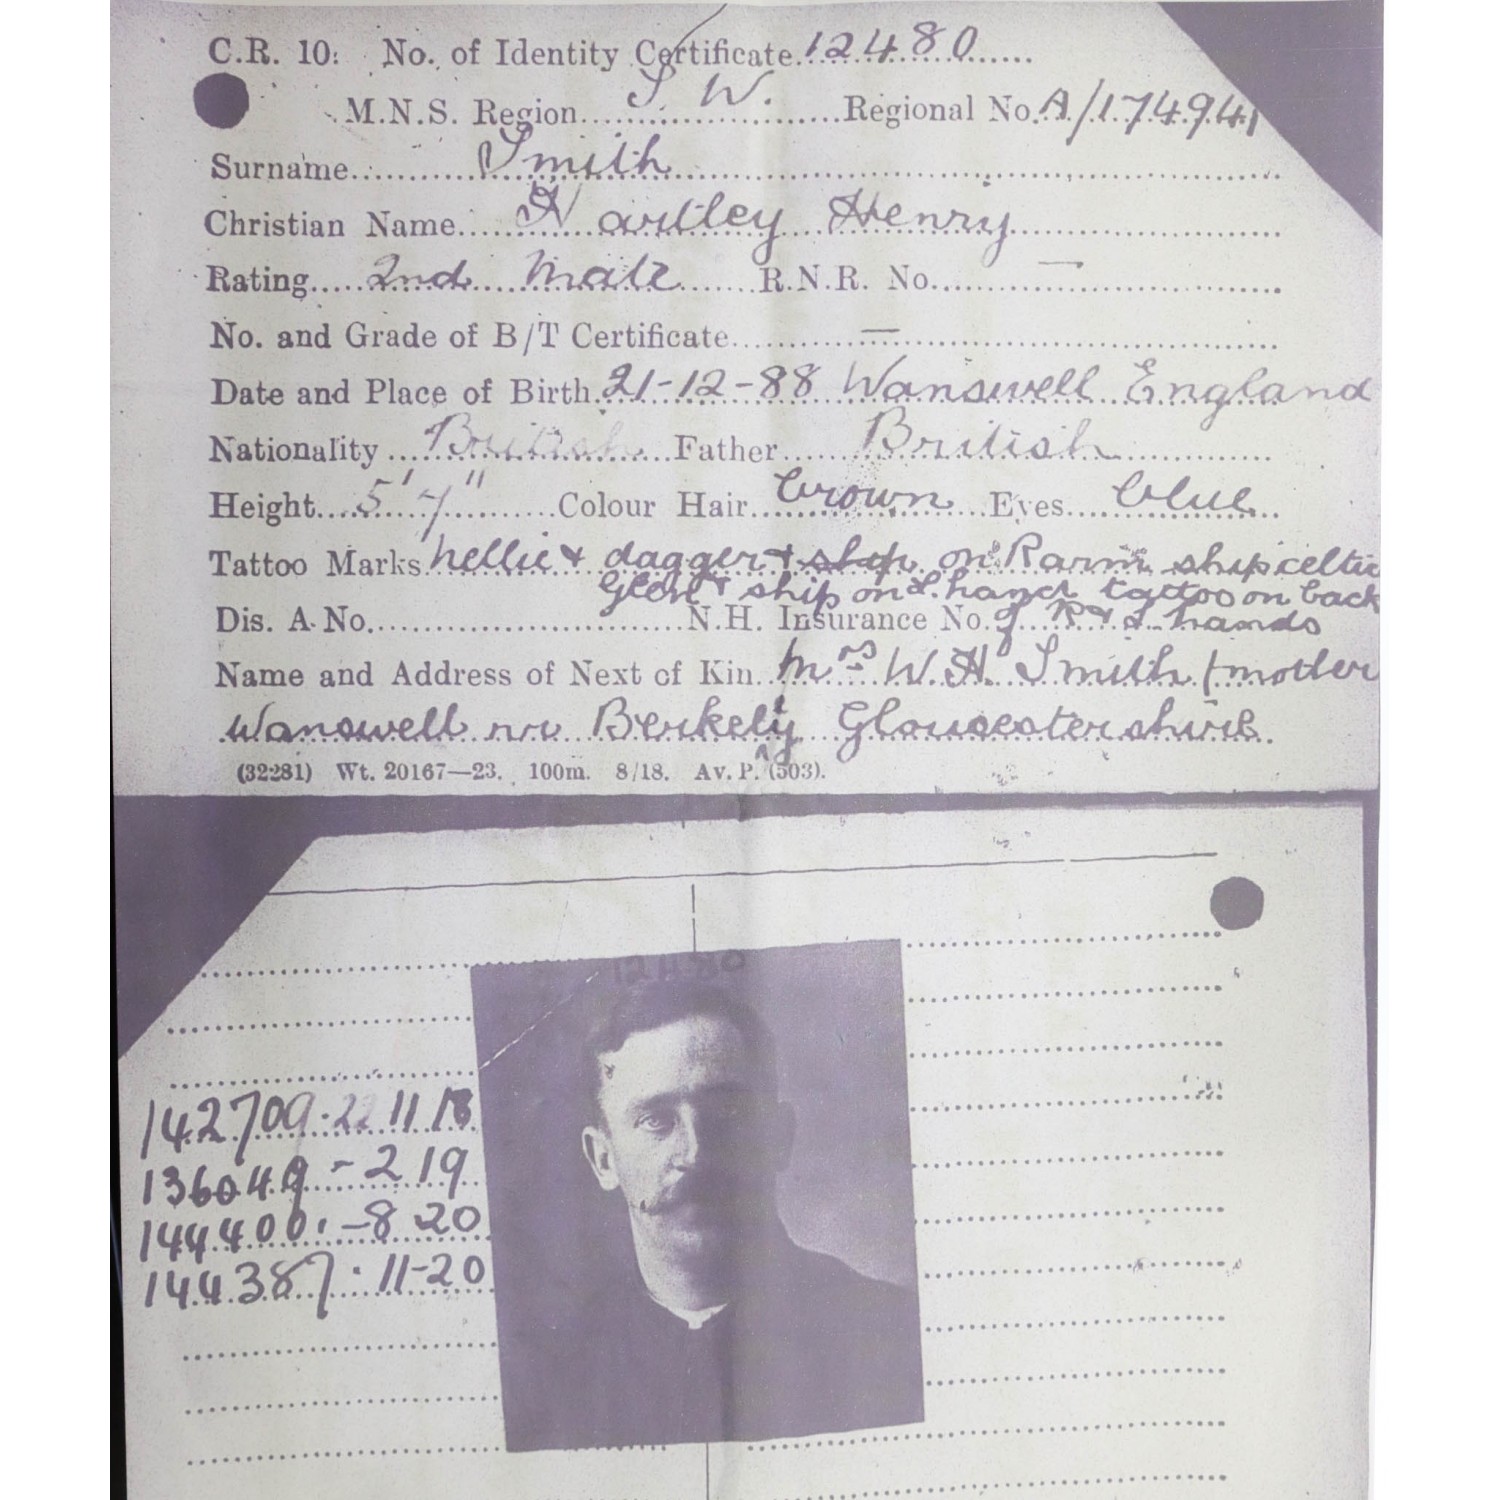 C.R. 10: No. of Identity Certificate 12480
M.N.S. Region S. W. Regional No. A/174941
Surname Smith
Christian Name Hartley Henry
Rating 2nd Mate R.N.R. No. —
No. and Grade of B/T Certificate —
Date and Place of Birth 21-12-88 Wanswell England
Nationality British Father British
Height 5' 7" Colour Hair brown Eyes blue
Tattoo Marks Nellie & dagger & ship on R arm ship celtic
& ship on L. hand tattoo on back
Dis. A. No. N.H. Insurance No. of R & L hands
Name and Address of Next of Kin Mrs W. H. Smith (mother
Wanswell nr Berkely Gloucestershire.
(32281) Wt. 20167—23. 100m. 8/18. Av. P. (503).
12480
142709. 22 11 18
136049 - 2 19
144400. - 8 20
144387. 11-20